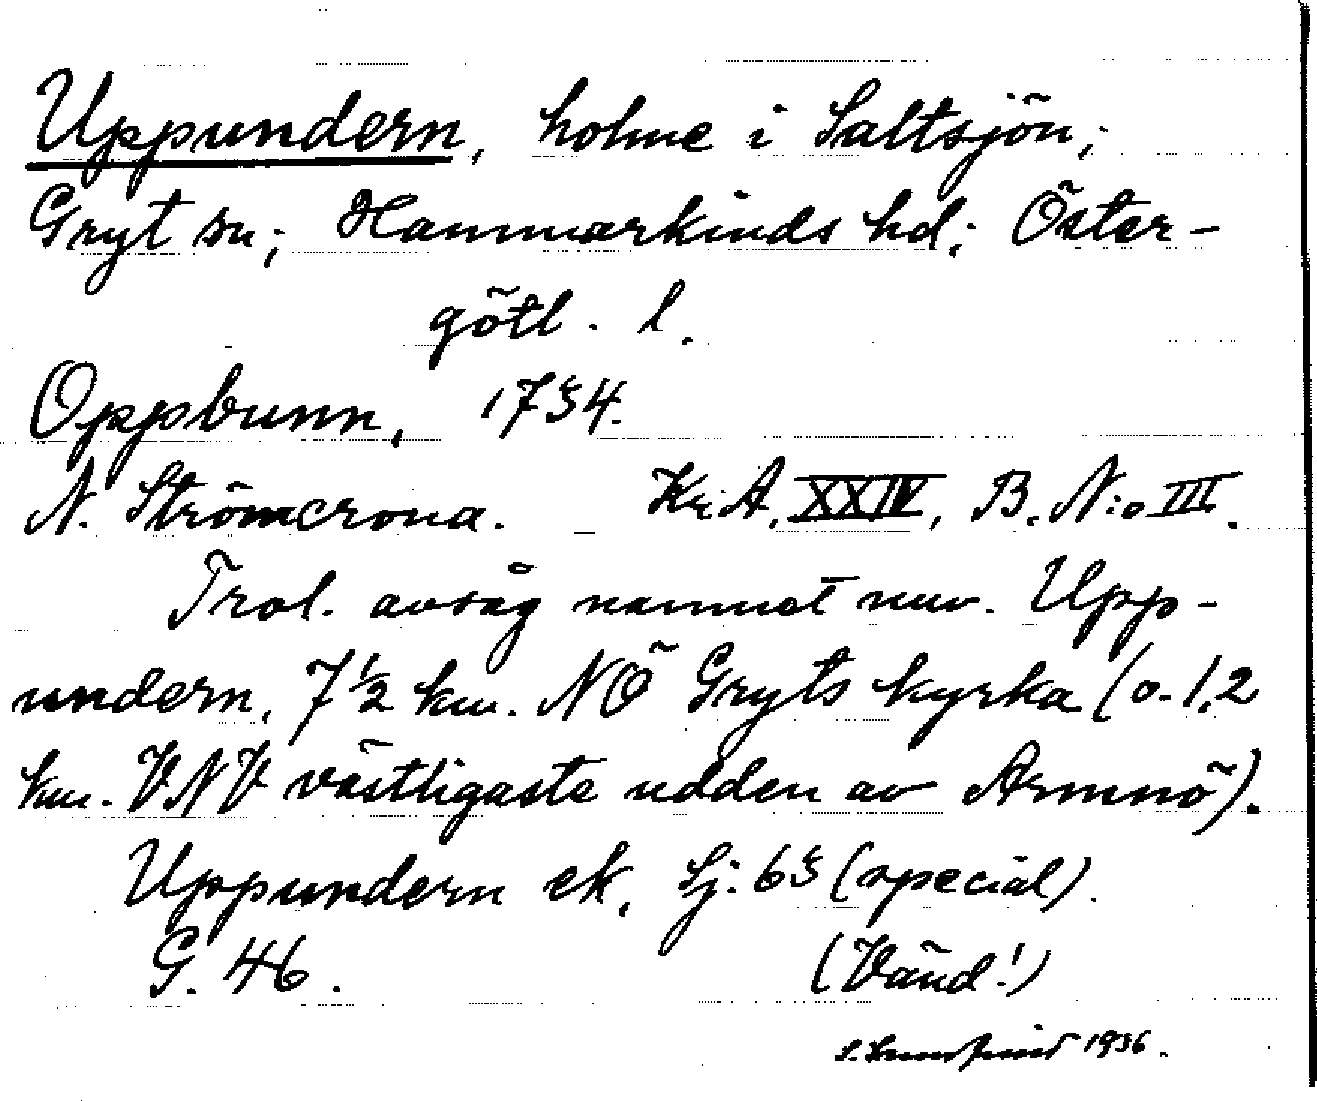 Uppundern, holme i Saltsjön;
Gryt sn; Hammarkinds hd; Öster-
götl. l.
Oppbunn, 1734.
N. Strömcrona. Kr.A. XXIV, B. N:o III.
Trol. avsåg namnet nuv. Upp-
undern, 7 1/2 km. NÖ Gryts kyrka (o. 1,2
km. VNV västligaste udden av Armnö).
Uppundern ek, Sj. 63 (special).
G. 46.
(Vänd!)
1936.